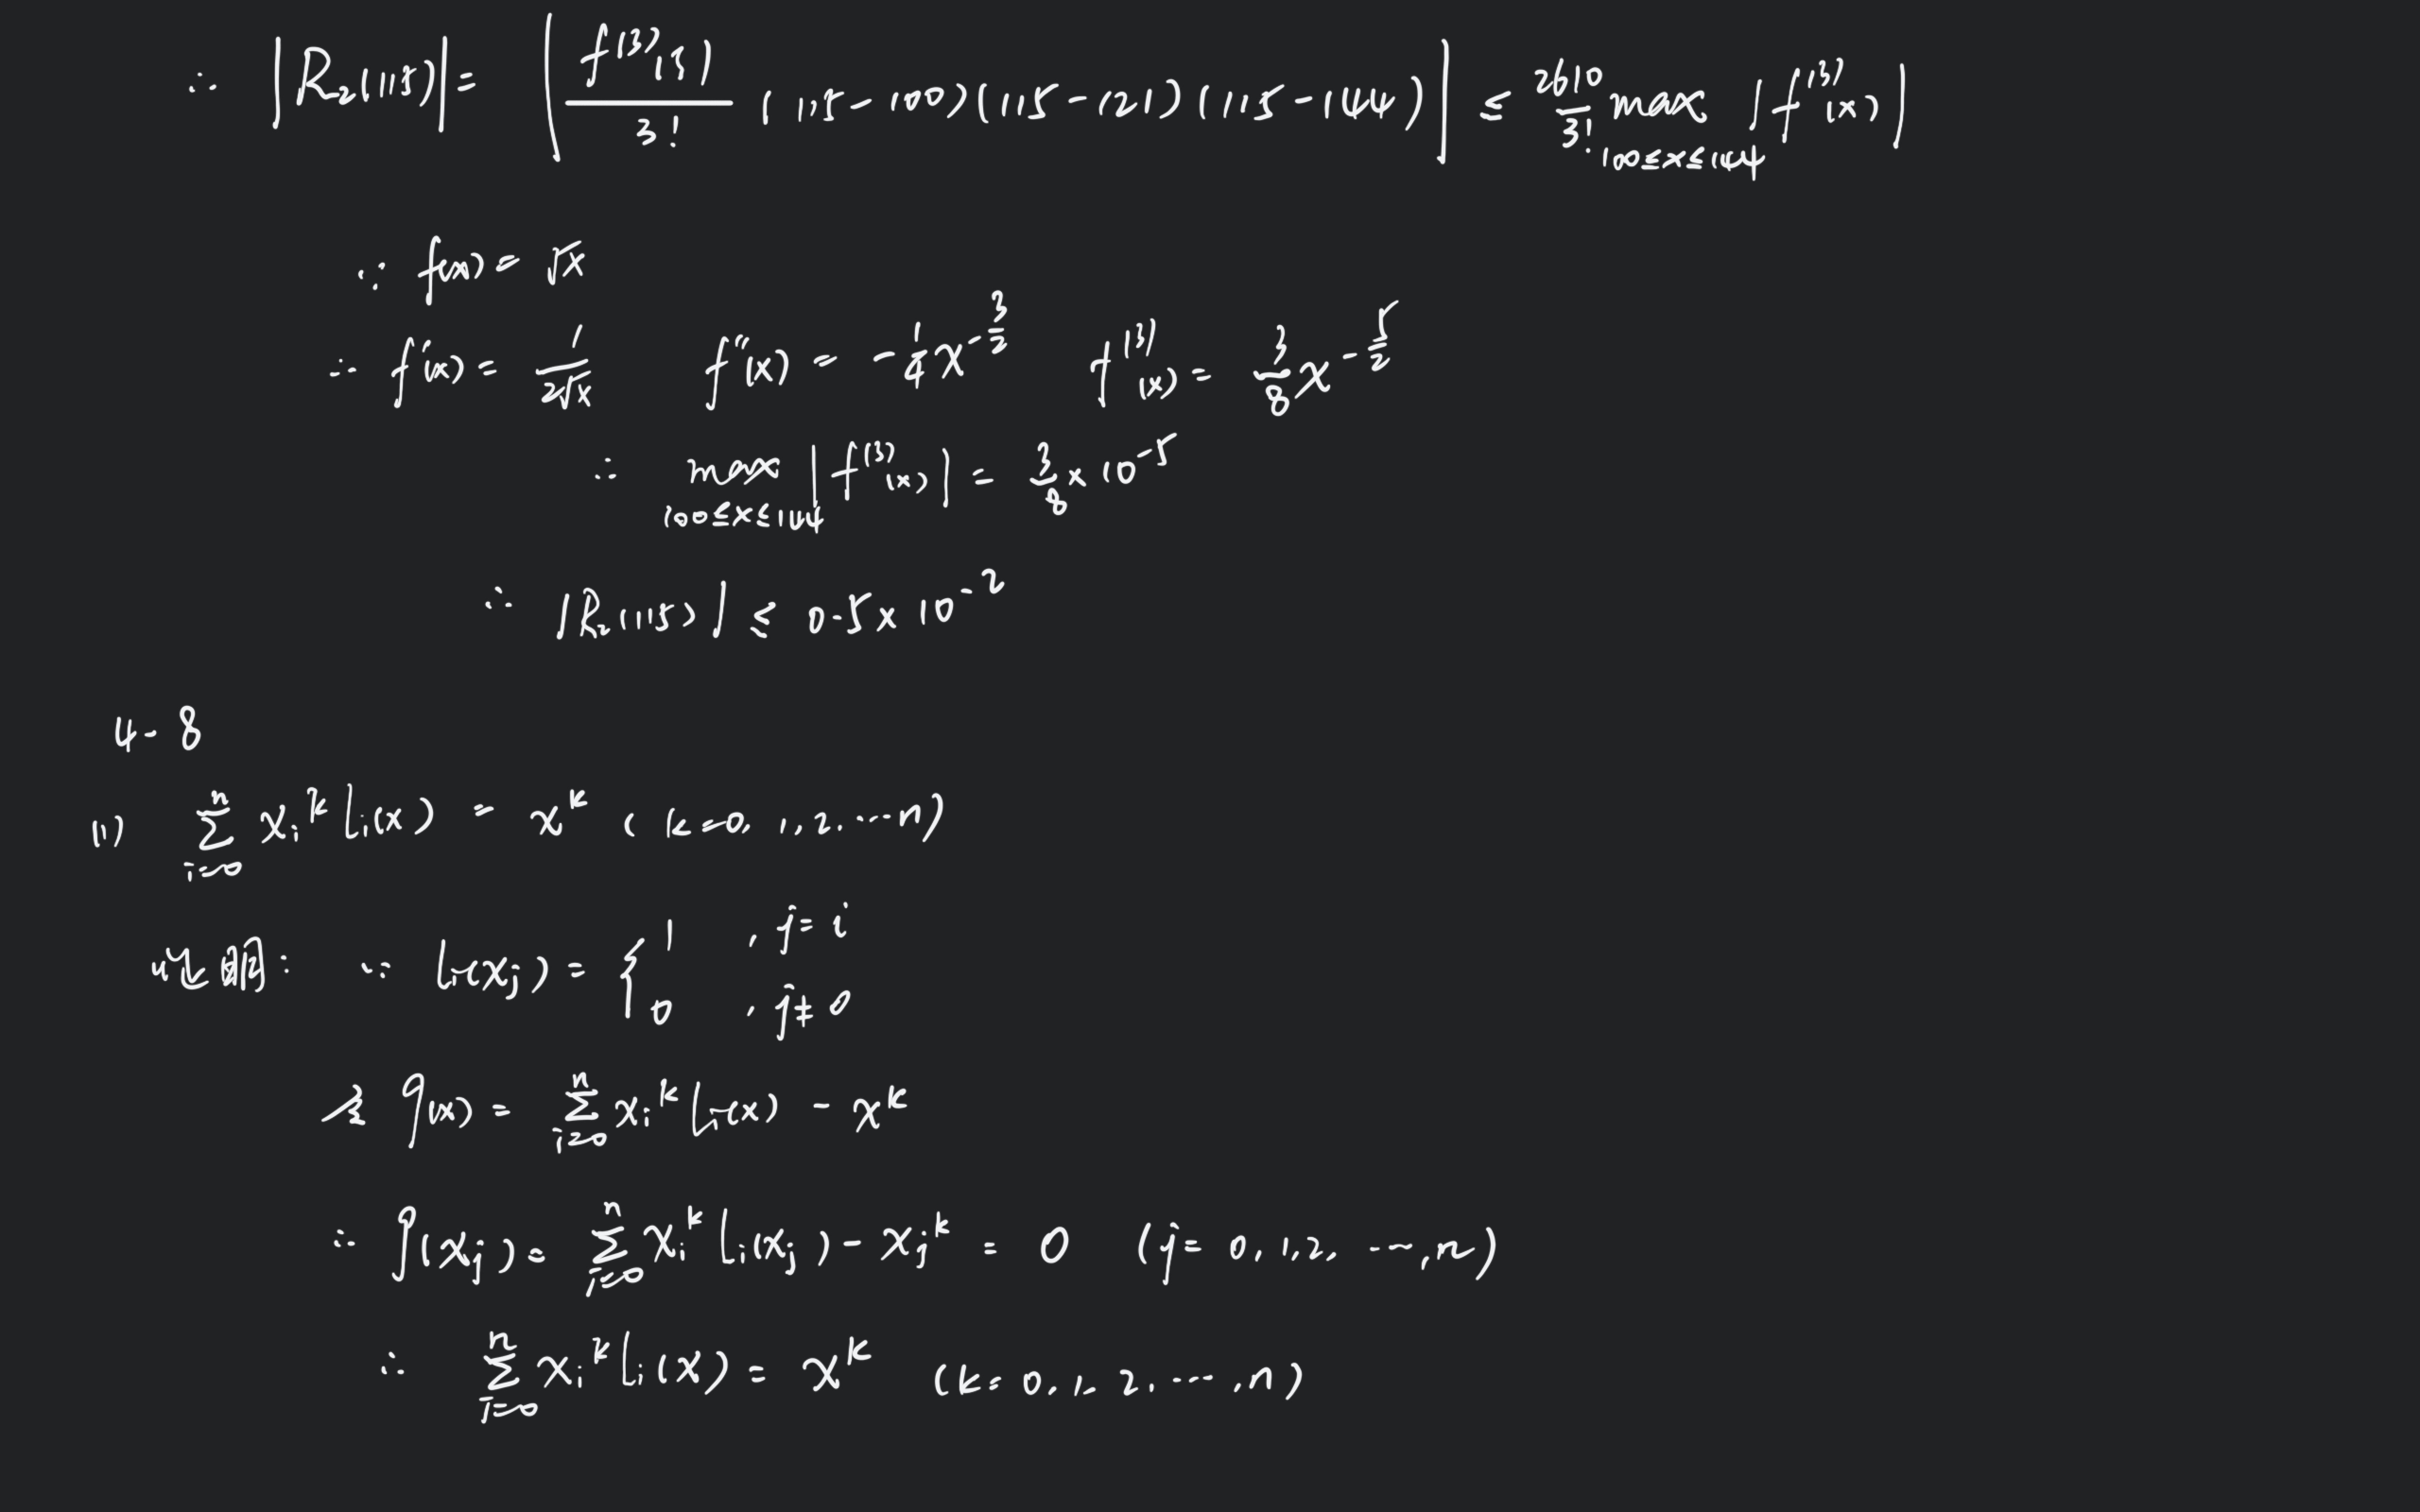 ∴ |R₂(115)| = |f⁽³⁾(ξ)/3! (115-100)(115-121)(115-144)| ≤ 2610/3! max_{100≤x≤144} |f⁽³⁾(x)|
∵ f(x) = √x
∴ f'(x) = 1/(2√x) f''(x) = -1/4 x^{-3/2} f⁽³⁾(x) = 3/8 x^{-5/2}
∴ max_{100≤x≤144} |f⁽³⁾(x)| = 3/8 × 10⁻⁵
∴ |R₂(115)| ≤ 0.5 × 10⁻²
4-8
(1) ∑_{i=0}^{n} x_i^k l_i(x) = x^k (k=0,1,2,…n)
证明: ∵ l_i(x_j) = { 1 , j=i
0 , j≠0
令 φ(x) = ∑_{i=0}^{n} x_i^k l_i(x) - x^k
∴ φ(x_j) = ∑_{i=0}^{n} x_i^k l_i(x_j) - x_j^k = 0 (j=0,1,2,…,n)
∴ ∑_{i=0}^{n} x_i^k l_i(x) = x^k (k=0,1,2,…,n)